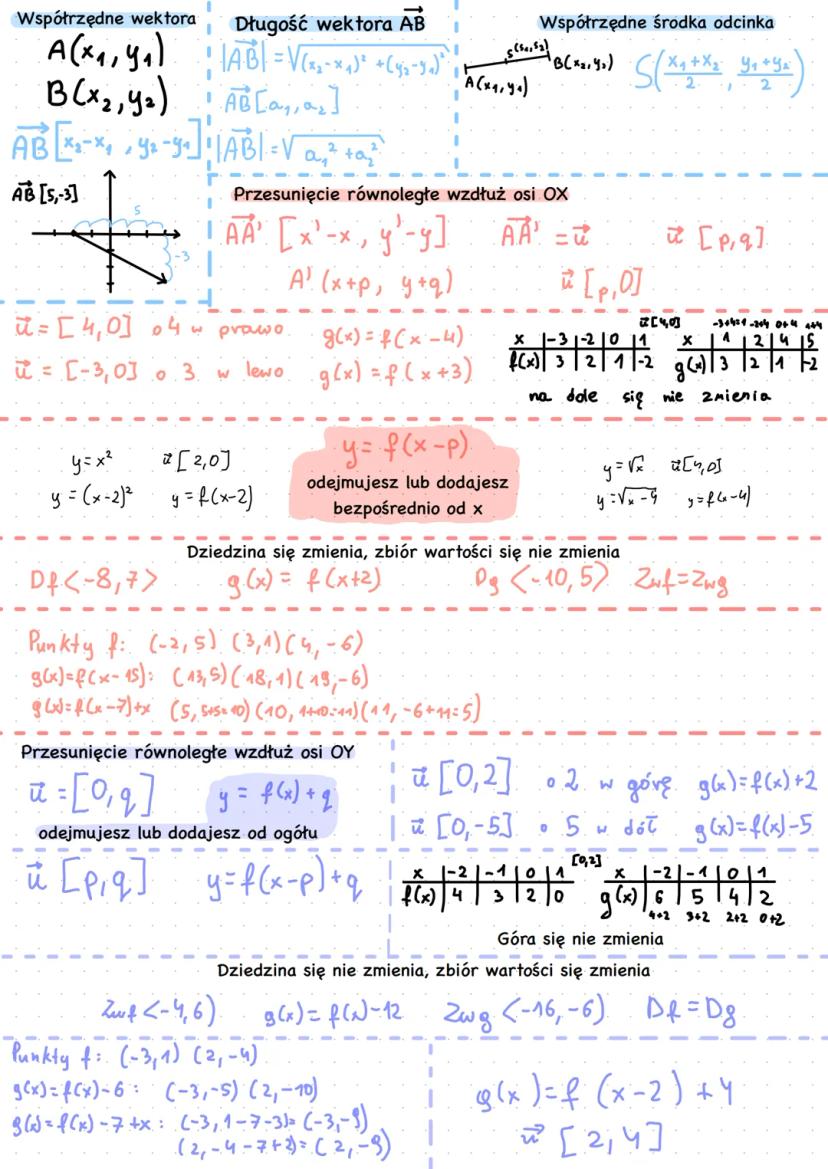 Współrzędne wektora
A(x₁, y₁)
B(x₂, y₂)
AB [x₂-x₁, y₂-y₁]
Długość wektora AB
|AB| = √(x₂-x₁)² + (y₂-y₁)²
AB [a₁, a₂]
|AB| = √a₁² + a₂²
Współrzędne środka odcinka
A(x₁, y₁) S(s₁, s₂) B(x₂, y₂)
S(x₁+x₂/2, y₁+y₂/2)
AB [5,-3]
5
-3
Przesunięcie równoległe wzdłuż osi OX
AA' [x'-x, y'-y] AA' = u u [p,q]
A' (x+p, y+q) u [p,0]
u = [4,0] o 4 w prawo g(x) = f(x-4)
u = [-3,0] o 3 w lewo g(x) = f(x+3)
u[4,0] -3+4=1 -2+4 0+4 1+4
x | -3 | -2 | 0 | 1 x | 1 | 2 | 4 | 5
f(x) | 3 | 2 | 1 | -2 g(x) | 3 | 2 | 1 | -2
na dole się nie zmienia
y = x² u [2,0]
y = (x-2)² y = f(x-2)
y = f(x-p)
odejmujesz lub dodajesz
bezpośrednio od x
y = √x u[4,0]
y = √x-4 y = f(x-4)
Dziedzina się zmienia, zbiór wartości się nie zmienia
Df <-8,7> g(x) = f(x+2) Dg <-10,5> Zwf = Zwg
Punkty f: (-2,5) (3,1) (4,-6)
g(x)=f(x-15): (13,5) (18,1) (19,-6)
g(x)=f(x-7)+x (5, 5+5=10) (10, 1+10=11) (11, -6+11=5)
Przesunięcie równoległe wzdłuż osi OY
u = [0,q] y = f(x) + q
odejmujesz lub dodajesz od ogółu
u [0,2] o 2 w górę g(x)=f(x)+2
u [0,-5] o 5 w dół g(x)=f(x)-5
u [p,q] y=f(x-p)+q
[0,2]
x | -2 | -1 | 0 | 1 x | -2 | -1 | 0 | 1
f(x) | 4 | 3 | 2 | 0 g(x) | 6 | 5 | 4 | 2
4+2 3+2 2+2 0+2
Góra się nie zmienia
Dziedzina się nie zmienia, zbiór wartości się zmienia
Zwf <-4,6) g(x) = f(x)-12 Zwg <-16,-6) Df = Dg
Punkty f: (-3,1) (2,-4)
g(x)=f(x)-6: (-3,-5) (2,-10)
g(x)=f(x)-7+x: (-3, 1-7-3)=(-3,-9)
(2,-4-7+2)=(2,-9)
g(x)=f (x-2) +4
u [2,4]